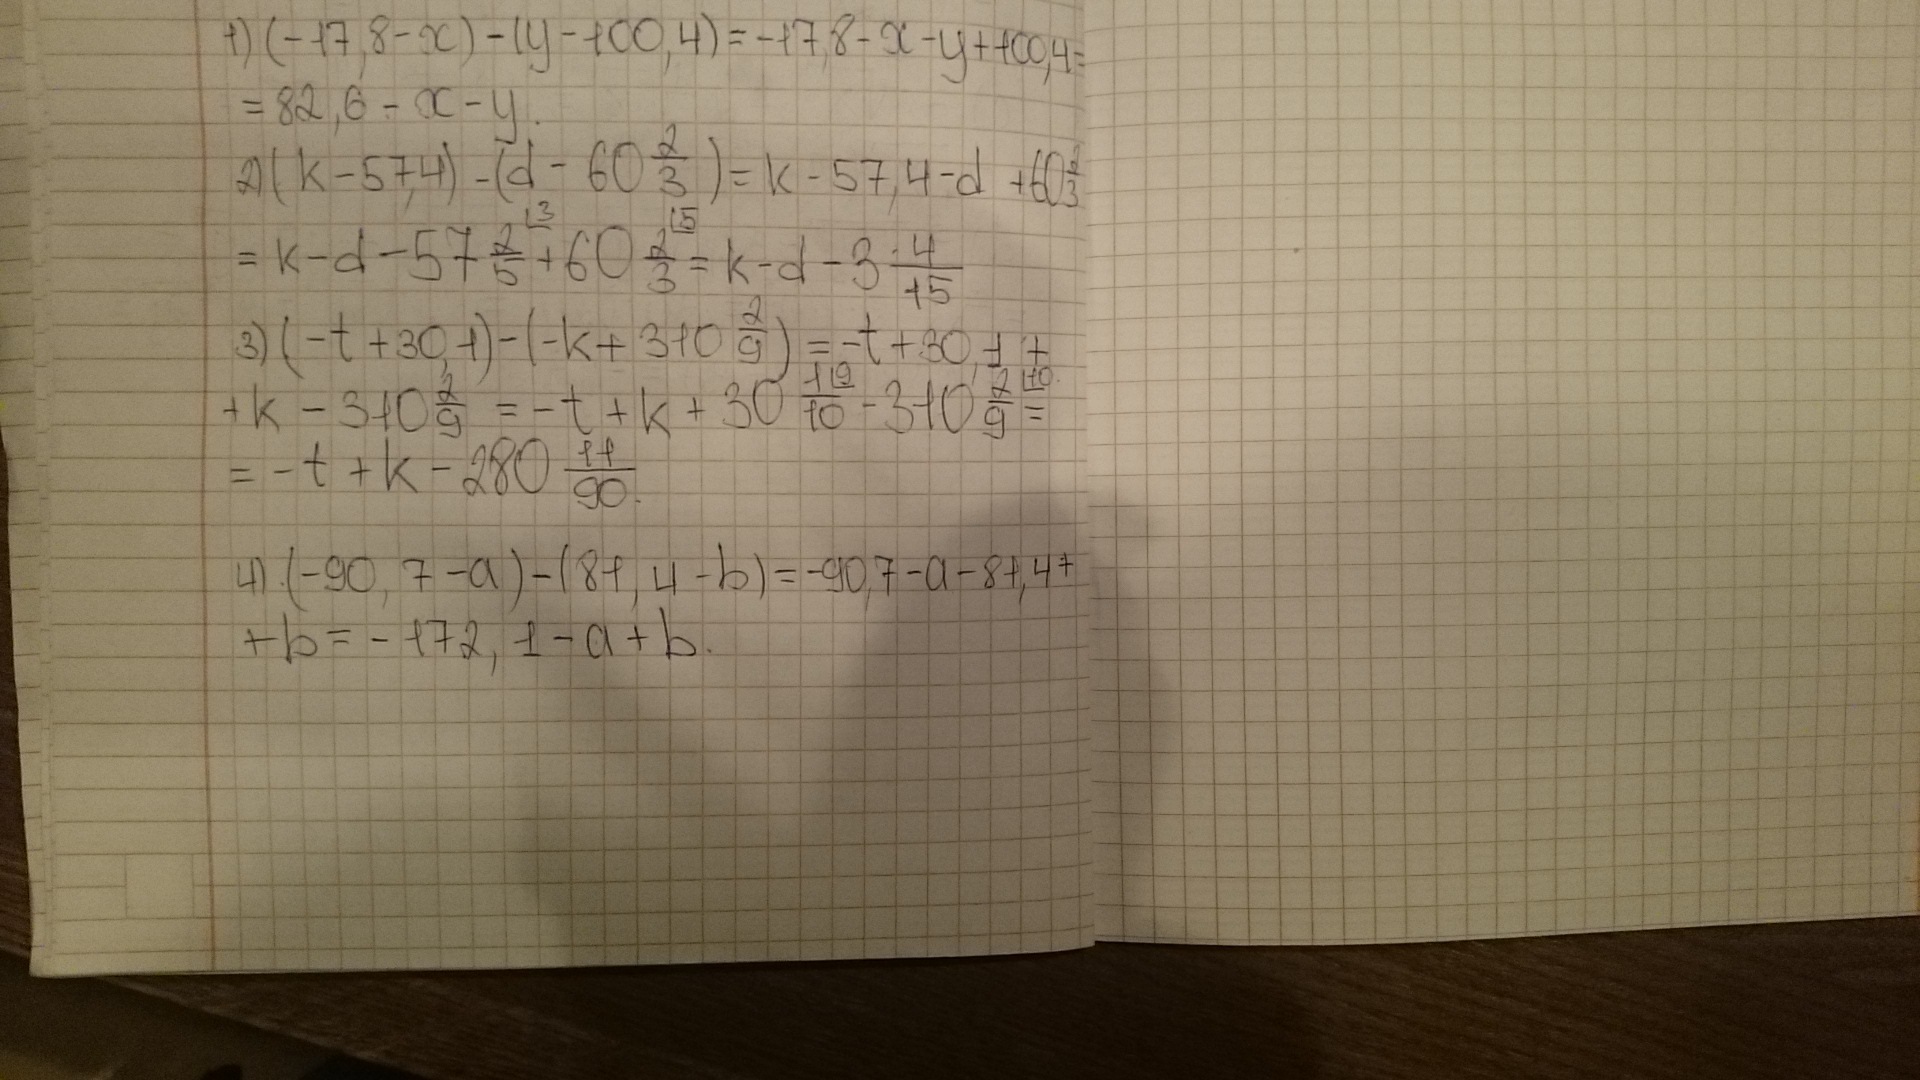 1) (-17,8-x)-(y-100,4)=-17,8-x-y+100,4=
=82,6-x-y.
2) (k-57,4)-(d-60 2/3)=k-57,4-d+60 2/3
=k-d-57 2/5 ⌊3 +60 2/3 ⌊5 =k-d-3 4/15
3) (-t+30,1)-(-k+310 2/9)=-t+30,1+
+k-310 2/9=-t+k+30 1/10 ⌊9 -310 2/9 ⌊10 =
=-t+k-280 11/90.
4) (-90,7-a)-(81,4-b)=-90,7-a-81,4+
+b=-172,1-a+b.